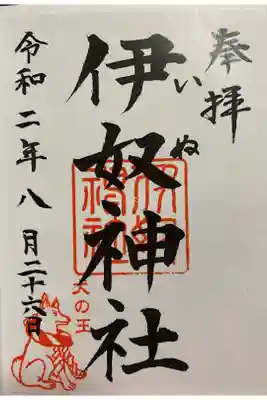 奉拝
伊奴神社
いぬ
犬の王
令和二年八月二十六日